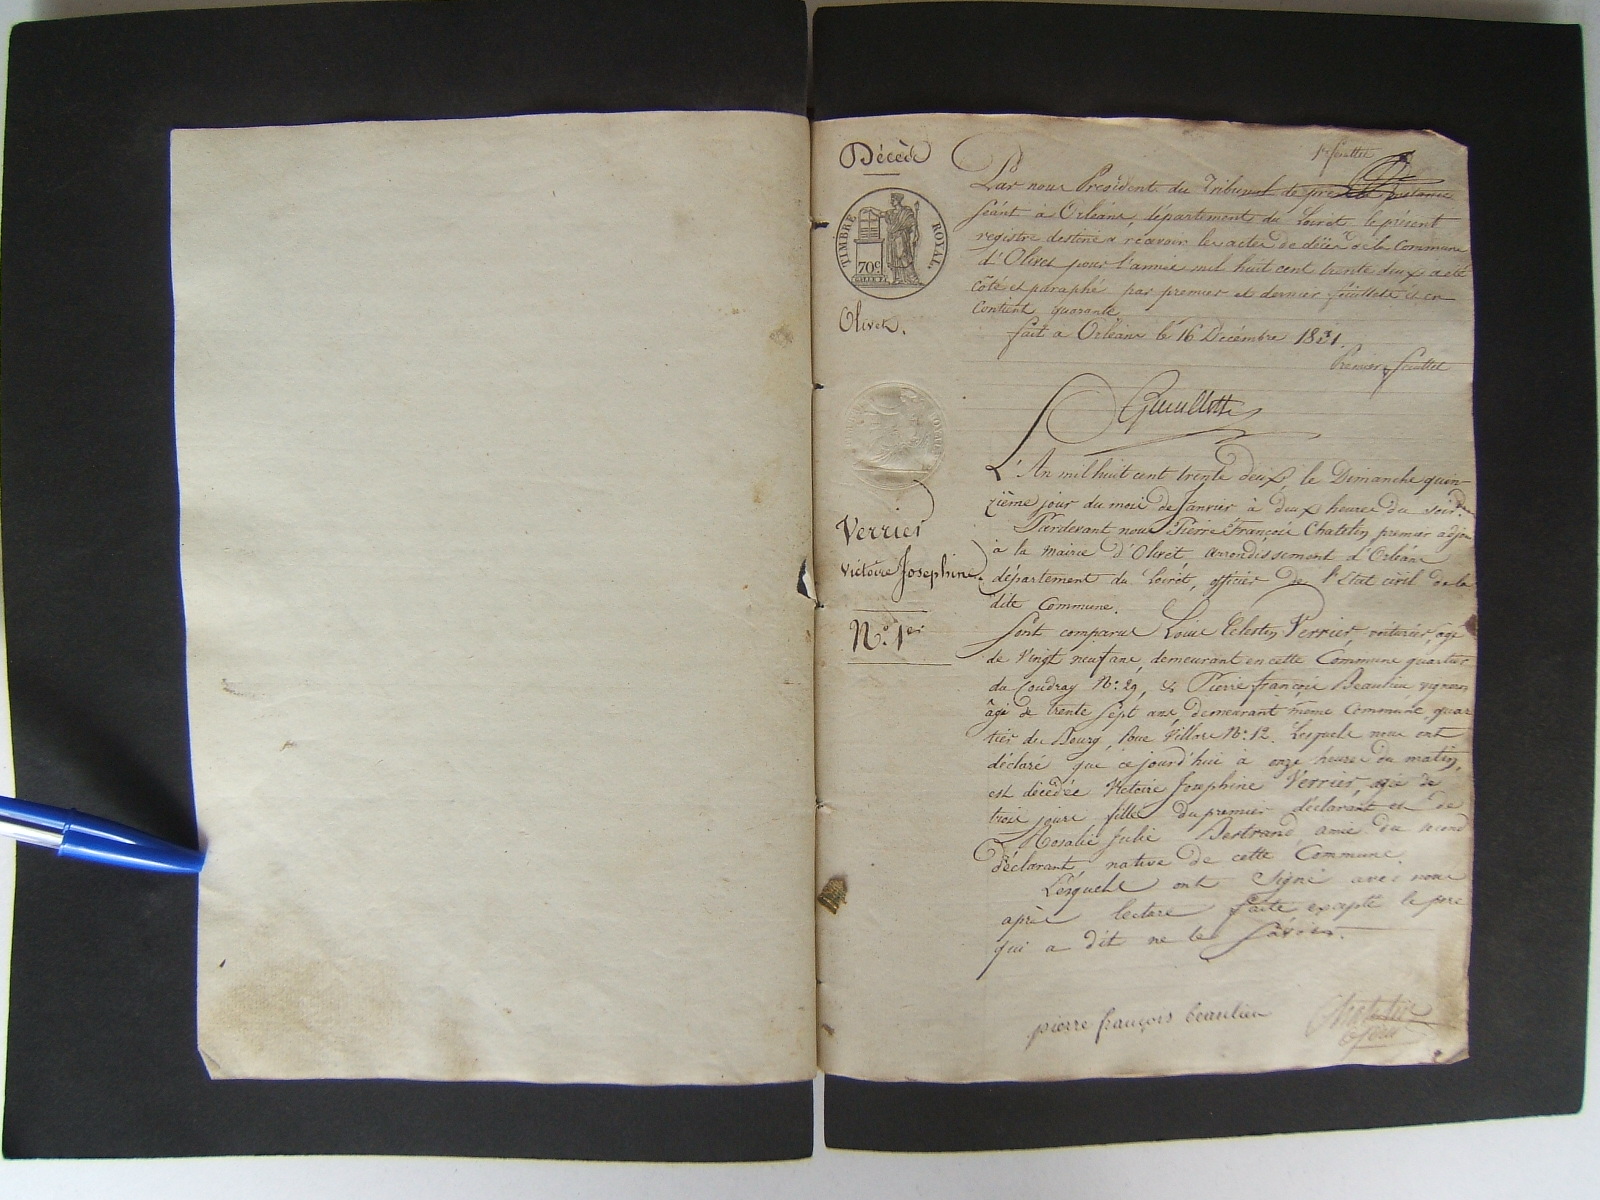 Décès
1er feuillet
TIMBRE ROYAL.
70c
Olivet.
Par nous Président du Tribunal de première Instance
séant à Orléans, département du Loiret, le présent
registre destiné a recevoir les actes de décès de la Commune
d'Olivet pour l'année mil huit cent trente deux a été
coté et paraphé par premier et dernier feuillets et en
contient quarante
fait a Orléans le 16 Décembre 1831.
Premier feuillet
Verrier
Victoire Josephine
N.º 1er
L'An mil huit cent trente deux le Dimanche quin-
zième jour du mois de Janvier à deux heures du soir.
Pardevant nous Pierre François Chatelin premier adjoin
à la mairie d'Olivet arrondissement d'Orléans
département du Loirét, officier de l'état civil de la
dite Commune.
Sont comparus Louis Celestin Verrier, voiturier, âgé
de vingt neuf ans, demeurant en cette Commune quartier
du Coudray N.º 29, & Pierre françois Beaulieu vigneron
âgé de trente sept ans demeurant même Commune, quar
tier du Bourg, Rue Villars N.º 12. Lesquels nous ont
déclaré que cejourd'hui à onze heures du matin,
est décédée Victoire Josephine Verrier, agée de
trois jours fille du premier déclarant et de
Rosalie Julie Bertrand, amie du second
déclarant, native de cette Commune.
Lésquels ont signé avec nous
après lecture faite excepté le pere
qui a dit ne le savoir.
pierre françois beaulieu
Chatelin